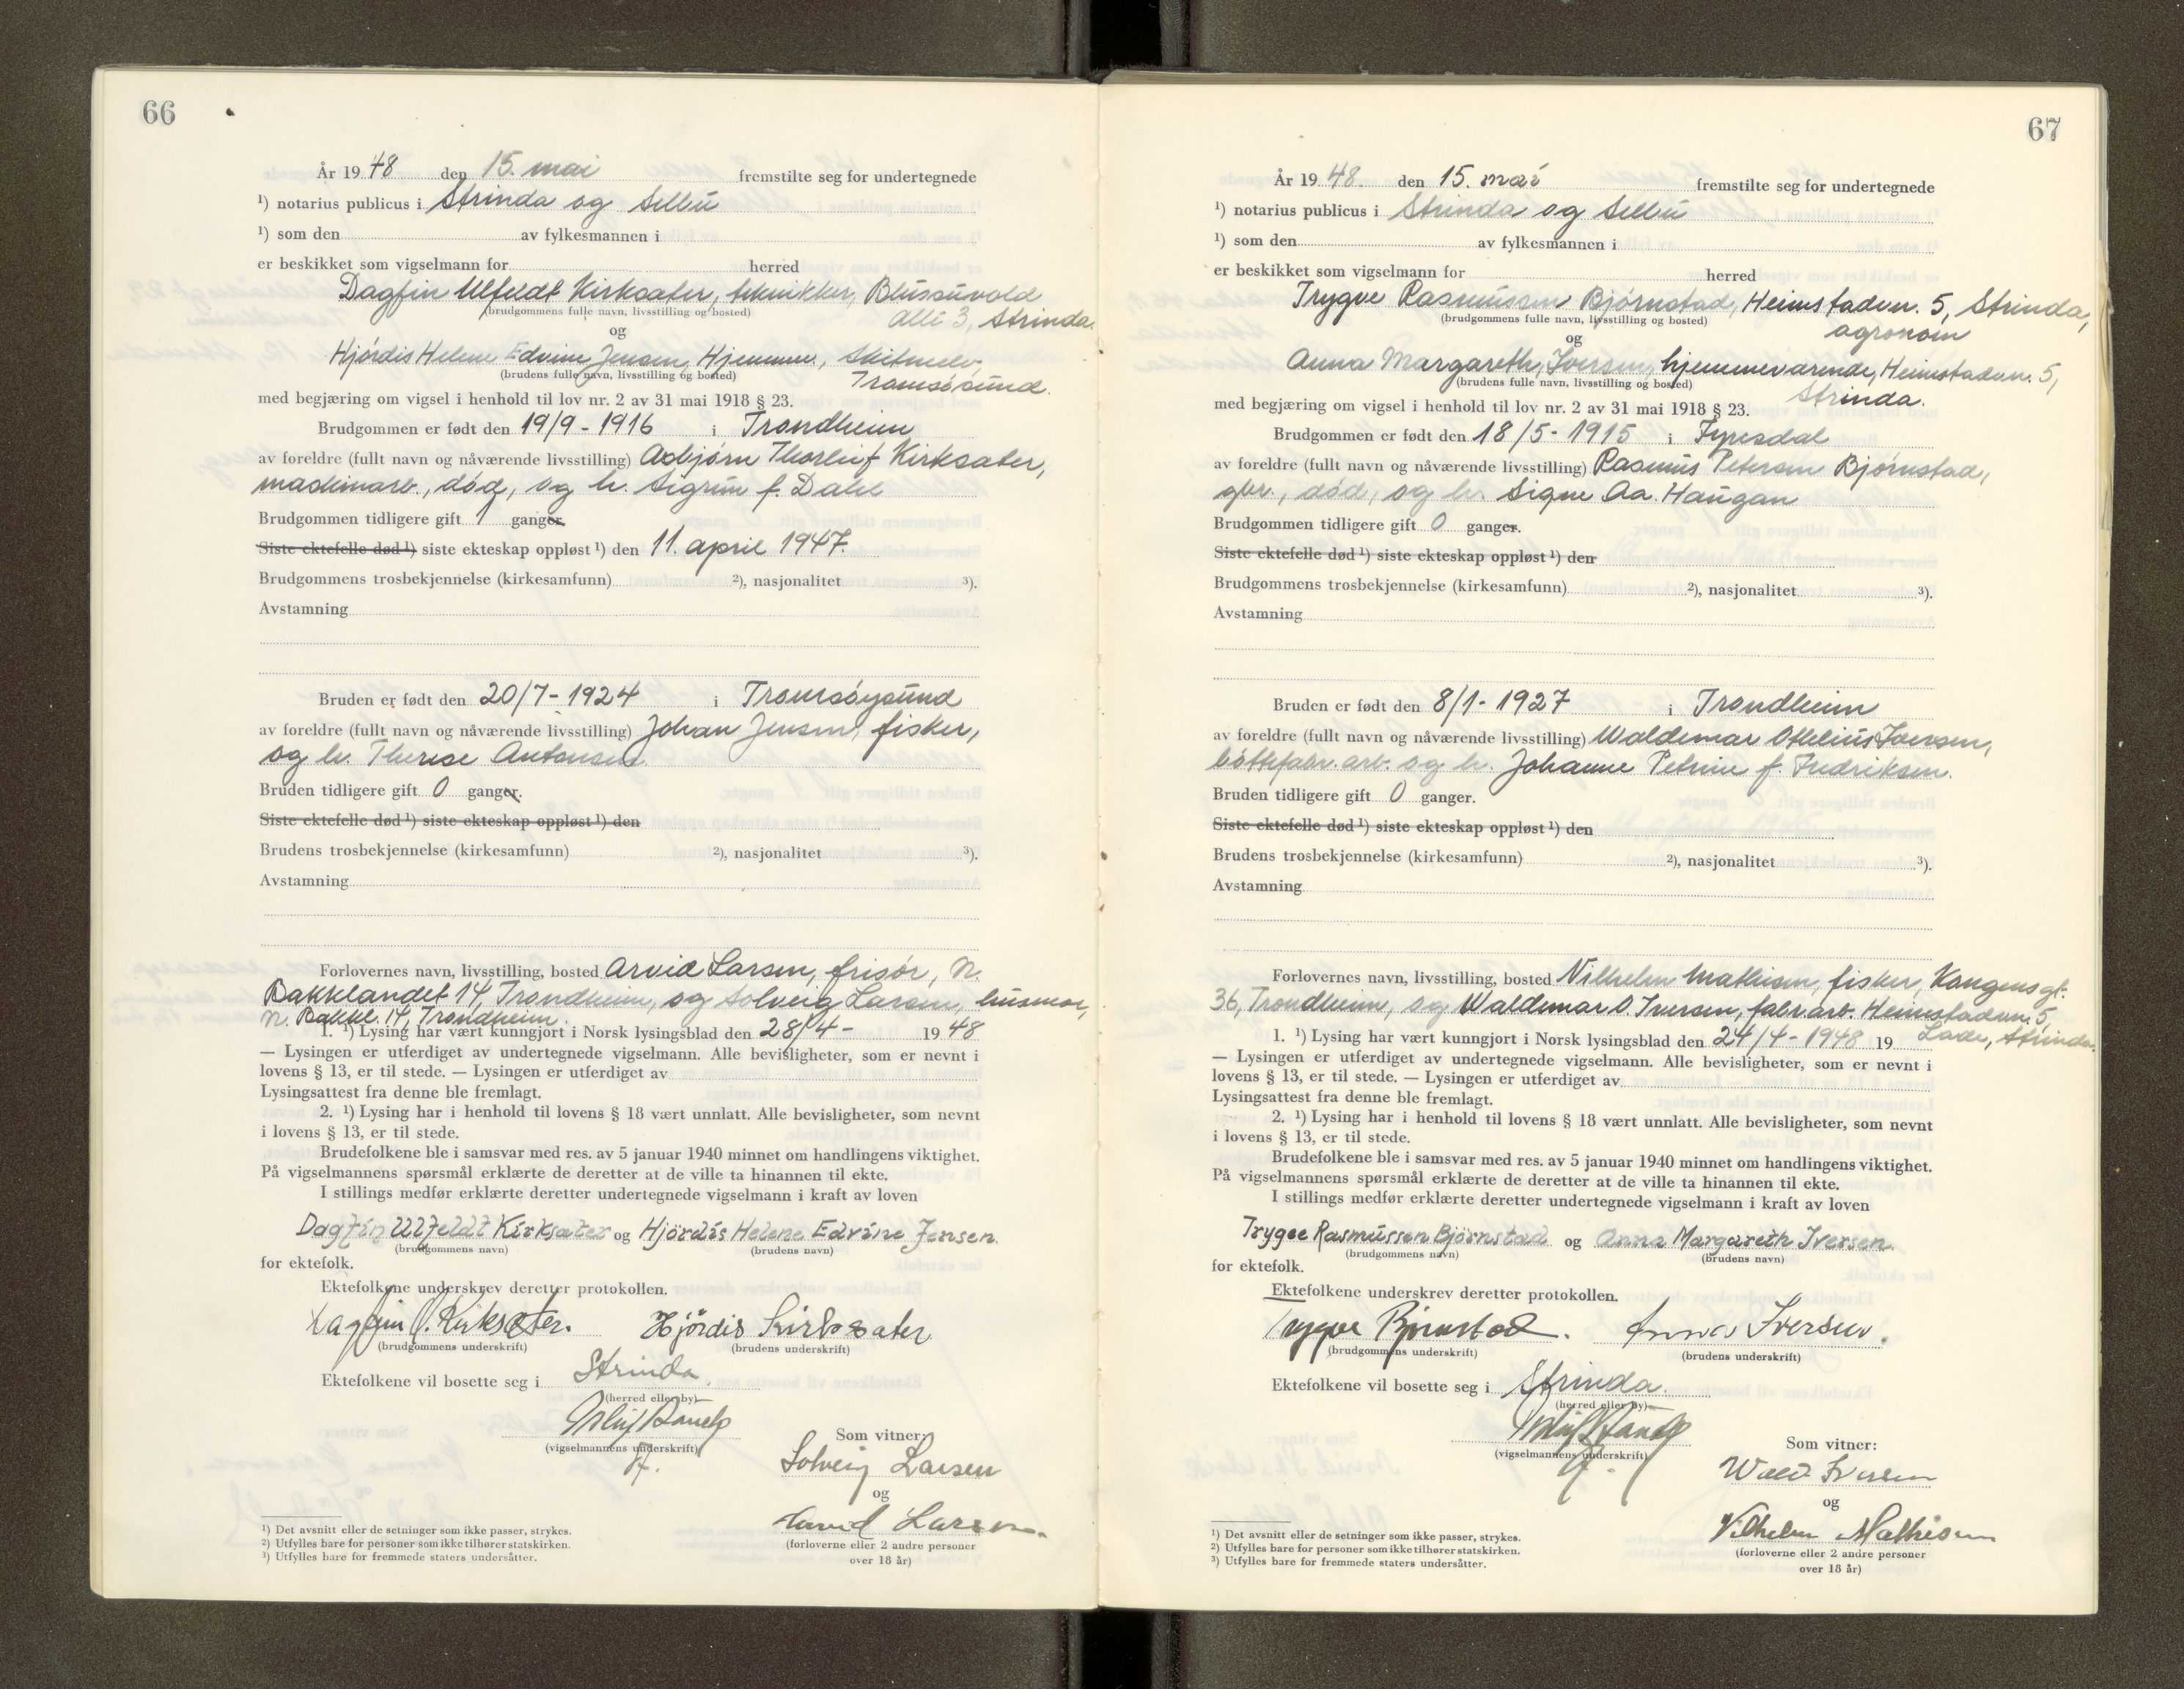 66
År 1948 den 15. mai fremstilte seg for undertegnede
¹) notarius publicus i Strinda og Selbu
¹) som den av fylkesmannen i
er beskikket som vigselmann for herred
Dagfin Ulfeldt Kirksæter, tekniker, Blussuvold
(brudgommens fulle navn, livsstilling og bosted)
alle 3, Strinda.
og
Hjørdis Helene Edvine Jensen, Hjemmev.,
(brudens fulle navn, livsstilling og bosted)
Tromsøsund.
med begjæring om vigsel i henhold til lov nr. 2 av 31 mai 1918 § 23.
Brudgommen er født den 19/9 - 1916 i Trondheim
av foreldre (fullt navn og nåværende livsstilling) Asbjørn Thorleif Kirksæter,
maskinarb., død, og h. Sigrun f. Dahl
Brudgommen tidligere gift 1 ganger
Siste ektefelle død ¹) siste ekteskap oppløst ¹) den 11. april 1947.
Brudgommens trosbekjennelse (kirkesamfunn) ²), nasjonalitet ³).
Avstamning
Bruden er født den 20/7 - 1924 i Tromsøysund
av foreldre (fullt navn og nåværende livsstilling) Johan Jensen, fisker,
og h. Therese Antonsen.
Bruden tidligere gift 0 ganger.
Siste ektefelle død ¹) siste ekteskap oppløst ¹) den
Brudens trosbekjennelse (kirkesamfunn) ²), nasjonalitet ³).
Avstamning
Forlovernes navn, livsstilling, bosted Arvid Larsen, frisør, N.
Bakklandet 14, Trondheim, og Solveig Larsen, husmor,
N. Bakkl. 14, Trondheim.
1. ¹) Lysing har vært kunngjort i Norsk lysingsblad den 28/4 - 1948
— Lysingen er utferdiget av undertegnede vigselmann. Alle bevisligheter, som er nevnt i
lovens § 13, er til stede. — Lysingen er utferdiget av
Lysingsattest fra denne ble fremlagt.
2. ¹) Lysing har i henhold til lovens § 18 vært unnlatt. Alle bevisligheter, som nevnt
i lovens § 13, er til stede.
Brudefolkene ble i samsvar med res. av 5 januar 1940 minnet om handlingens viktighet.
På vigselmannens spørsmål erklærte de deretter at de ville ta hinannen til ekte.
I stillings medfør erklærte deretter undertegnede vigselmann i kraft av loven
Dagfin Ulfeldt Kirksæter og Hjördis Helene Edvine Jensen.
(brudgommens navn) (brudens navn)
for ektefolk.
Ektefolkene underskrev deretter protokollen.
Dagfin U. Kirksæter. Hjördis Kirksæter
(brudgommens underskrift) (brudens underskrift)
Ektefolkene vil bosette seg i Strinda.
(herred eller by)
(vigselmannens underskrift)
Som vitner:
Solveig Larsen
og
Arvid Larsen.
(forloverne eller 2 andre personer
over 18 år)
¹) Det avsnitt eller de setninger som ikke passer, strykes.
²) Utfylles bare for personer som ikke tilhører statskirken.
³) Utfylles bare for fremmede staters undersåtter.
67
År 1948. den 15. mai fremstilte seg for undertegnede
¹) notarius publicus i Strinda og Selbu
¹) som den av fylkesmannen i
er beskikket som vigselmann for herred
Trygve Rasmussen Bjørnstad, Heimstadvn. 5, Strinda,
(brudgommens fulle navn, livsstilling og bosted)
agronom
og
Anna Margareth Iversen, hjemmeværende, Heimstadvn. 5,
(brudens fulle navn, livsstilling og bosted)
Strinda.
med begjæring om vigsel i henhold til lov nr. 2 av 31 mai 1918 § 23.
Brudgommen er født den 18/5 - 1915 i Fyresdal
av foreldre (fullt navn og nåværende livsstilling) Rasmus Petersen Bjørnstad,
gbr., død, og h. Signe Aa. Haugan
Brudgommen tidligere gift 0 ganger.
Siste ektefelle død ¹) siste ekteskap oppløst ¹) den
Brudgommens trosbekjennelse (kirkesamfunn) ²), nasjonalitet ³).
Avstamning
Bruden er født den 8/1 - 1927 i Trondheim
av foreldre (fullt navn og nåværende livsstilling) Waldemar Othelius Iversen,
bøttefabr.arb. og h. Johanne Petrine f. Fredriksen.
Bruden tidligere gift 0 ganger.
Siste ektefelle død ¹) siste ekteskap oppløst ¹) den
Brudens trosbekjennelse (kirkesamfunn) ²), nasjonalitet ³).
Avstamning
Forlovernes navn, livsstilling, bosted Vilhelm Mathisen, fisker, Kongensgt.
36, Trondheim, og Waldemar O. Iversen, fabr.arb. Heimstadvn. 5,
1. ¹) Lysing har vært kunngjort i Norsk lysingsblad den 24/4 - 1948 19 Lade, Strinda.
— Lysingen er utferdiget av undertegnede vigselmann. Alle bevisligheter, som er nevnt i
lovens § 13, er til stede. — Lysingen er utferdiget av
Lysingsattest fra denne ble fremlagt.
2. ¹) Lysing har i henhold til lovens § 18 vært unnlatt. Alle bevisligheter, som nevnt
i lovens § 13, er til stede.
Brudefolkene ble i samsvar med res. av 5 januar 1940 minnet om handlingens viktighet.
På vigselmannens spørsmål erklærte de deretter at de ville ta hinannen til ekte.
I stillings medfør erklærte deretter undertegnede vigselmann i kraft av loven
Trygve Rasmüssen Björnstad og Anna Margareth Iversen.
(brudgommens navn) (brudens navn)
for ektefolk.
Ektefolkene underskrev deretter protokollen.
Trygve Bjørnstad. Anna Iversen.
(brudgommens underskrift) (brudens underskrift)
Ektefolkene vil bosette seg i Strinda.
(herred eller by)
(vigselmannens underskrift)
Som vitner:
Wald Iversen
og
Vilhelm Mathisen
(forloverne eller 2 andre personer
over 18 år)
¹) Det avsnitt eller de setninger som ikke passer, strykes.
²) Utfylles bare for personer som ikke tilhører statskirken.
³) Utfylles bare for fremmede staters undersåtter.